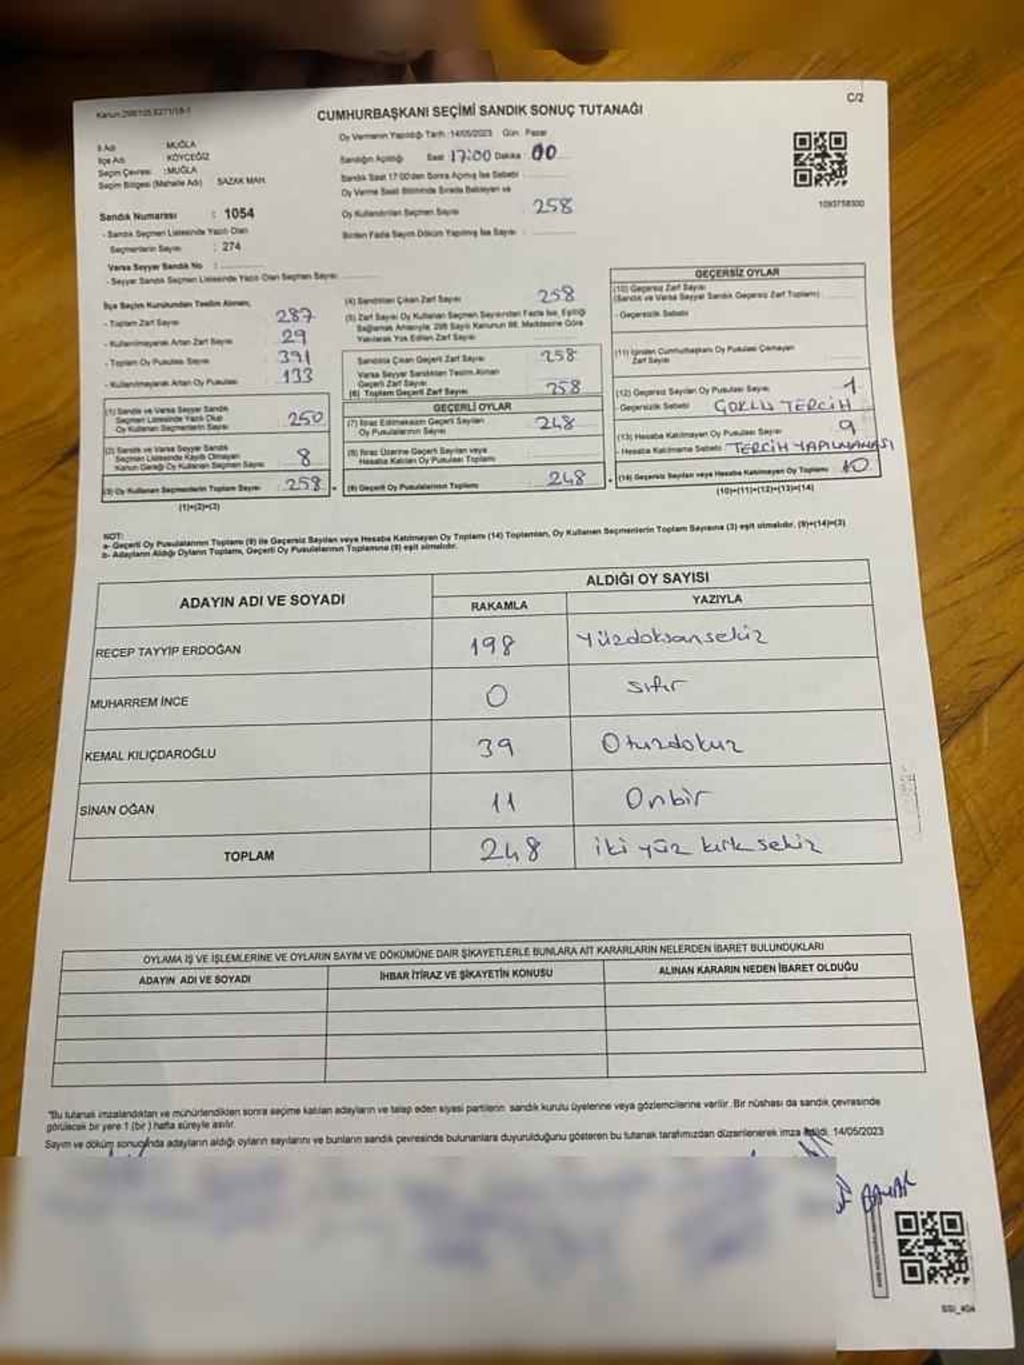 CUMHURBAŞKANI SEÇİMİ SANDIK SONUÇ TUTANAĞI
C/2
İl Adı MUĞLA
İlçe Adı KÖYCEĞİZ
Seçim Çevresi :MUĞLA
Seçim Bölgesi (Mahalle Adı) SAZAK MAH.
Oy Vermenin Yapıldığı Tarih :14/05/2023 Gün : Pazar
Sandığın Açıldığı Saat 17:00 Dakika : 00
Sandık Saat 17:00'den Sonra Açılmış İse Sebebi
Oy Verme Saati Bitiminde Sırada Bekleyen ve
Oy Kullandırılan Seçmen Sayısı : 258
Birden Fazla Sayım Döküm Yapılmış İse Sayısı :
1093758300
Sandık Numarası : 1054
- Sandık Seçmen Listesinde Yazılı Olan
Seçmenlerin Sayısı : 274
Varsa Seyyar Sandık No :
- Seyyar Sandık Seçmen Listesinde Yazılı Olan Seçmen Sayısı :
İlçe Seçim Kurulundan Teslim Alınan;
- Toplam Zarf Sayısı 287
- Kullanılmayarak Artan Zarf Sayısı 29
- Toplam Oy Pusulası Sayısı 391
- Kullanılmayarak Artan Oy Pusulası 133
(1) Sandık ve Varsa Seyyar Sandık
Seçmen Listesinde Yazılı Olup
Oy Kullanan Seçmenlerin Sayısı 250
(2) Sandık ve Varsa Seyyar Sandık
Seçmen Listesinde Kaydı Olmayan
Kanun Gereği Oy Kullanan Seçmen Sayısı 8
(3) Oy Kullanan Seçmenlerin Toplam Sayısı 258
(1)+(2)=(3)
(4) Sandıktan Çıkan Zarf Sayısı 258
(5) Zarf Sayısı Oy Kullanan Seçmen Sayısından Fazla İse, Eşitliği
Sağlamak Amacıyla, 298 Sayılı Kanunun 98. Maddesine Göre
Yakılarak Yok Edilen Zarf Sayısı
Sandıkta Çıkan Geçerli Zarf Sayısı 258
Varsa Seyyar Sandıktan Teslim Alınan
Geçerli Zarf Sayısı
(6) Toplam Geçerli Zarf Sayısı 258
GEÇERLİ OYLAR
(7) İtiraz Edilmeksizin Geçerli Sayılan
Oy Pusulalarının Sayısı 248
(8) İtiraz Üzerine Geçerli Sayılan veya
Hesaba Katılan Oy Pusulası Toplamı
(9) Geçerli Oy Pusulalarının Toplamı 248
GEÇERSİZ OYLAR
(10) Geçersiz Zarf Sayısı
(Sandık ve Varsa Seyyar Sandık Geçersiz Zarf Toplamı)
- Geçersizlik Sebebi
(11) İçinden Cumhurbaşkanı Oy Pusulası Çıkmayan
Zarf Sayısı
(12) Geçersiz Sayılan Oy Pusulası Sayısı 1
- Geçersizlik Sebebi ÇOKLU TERCİH
(13) Hesaba Katılmayan Oy Pusulası Sayısı 9
- Hesaba Katılmama Sebebi TERCİH YAPILMAMASI
(14) Geçersiz Sayılan veya Hesaba Katılmayan Oy Toplamı 10
(10)+(11)+(12)+(13)=(14)
NOT:
a- Geçerli Oy Pusulalarının Toplamı (9) ile Geçersiz Sayılan veya Hesaba Katılmayan Oy Toplamı (14) Toplamları, Oy Kullanan Seçmenlerin Toplam Sayısına (3) eşit olmalıdır. (9)+(14)=(3)
b- Adayların Aldığı Oyların Toplamı, Geçerli Oy Pusulalarının Toplamına (9) eşit olmalıdır.
ADAYIN ADI VE SOYADI
ALDIĞI OY SAYISI
RAKAMLA YAZIYLA
RECEP TAYYİP ERDOĞAN 198 Yüzdoksansekiz
MUHARREM İNCE 0 sıfır
KEMAL KILIÇDAROĞLU 39 Otuzdokuz
SİNAN OĞAN 11 Onbir
TOPLAM 248 iki yüz kırk sekiz
OYLAMA İŞ VE İŞLEMLERİNE VE OYLARIN SAYIM VE DÖKÜMÜNE DAİR ŞİKAYETLERLE BUNLARA AİT KARARLARIN NELERDEN İBARET BULUNDUKLARI
ADAYIN ADI VE SOYADI İHBAR İTİRAZ VE ŞİKAYETİN KONUSU ALINAN KARARIN NEDEN İBARET OLDUĞU
"Bu tutanak imzalandıktan ve mühürlendikten sonra seçime katılan adayların ve talep eden siyasi partilerin sandık kurulu üyelerine veya gözlemcilerine verilir. Bir nüshası da sandık çevresinde
görülecek bir yere 1 (bir) hafta süreyle asılır.
Sayım ve döküm sonucunda adayların aldığı oyların sayılarını ve bunların sandık çevresinde bulunanlara duyurulduğunu gösteren bu tutanak tarafımızdan düzenlenerek imza edildi. 14/05/2023